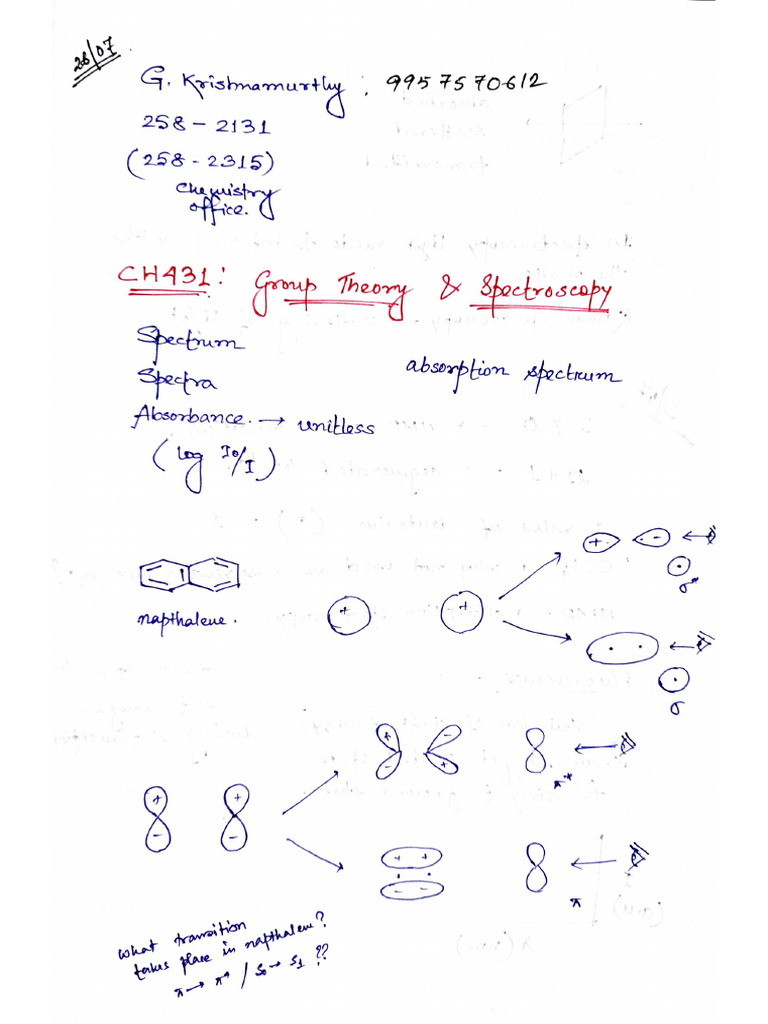 28/07
G. Krishnamurthy : 9957570612
258 - 2131
(258 - 2315)
Chemistry
office.
CH431: Group Theory & Spectroscopy
Spectrum
Spectra
absorption spectrum
Absorbance. → unitless
(log I0/I)
+ · · -
σ*
napthalene.
+ +
σ
+ - - +
π*
+ - + -
+ + - -
π
What transition
takes place in napthalene?
π → π* / S0 → S1 ??